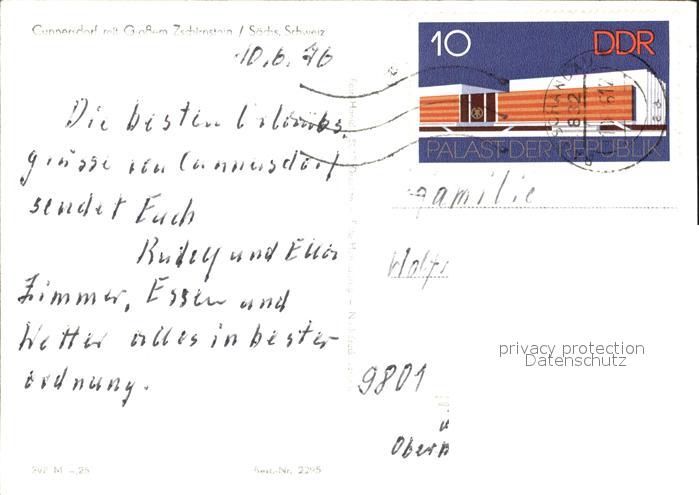 Cunnersdorf mit Großem Zschirnstein / Sächs. Schweiz
10.6.76
Die besten Urlaubs.
grüsse von Cunnersdorf
sendet Euch
Rudolf und Ella
Zimmer, Essen und
Wetter alles in bester
ordnung.
EVP M -,25
Best.-Nr. 2295
10 DDR
PALAST DER REPUBLIK
Familie
Wolf
9801
privacy protection
Datenschutz